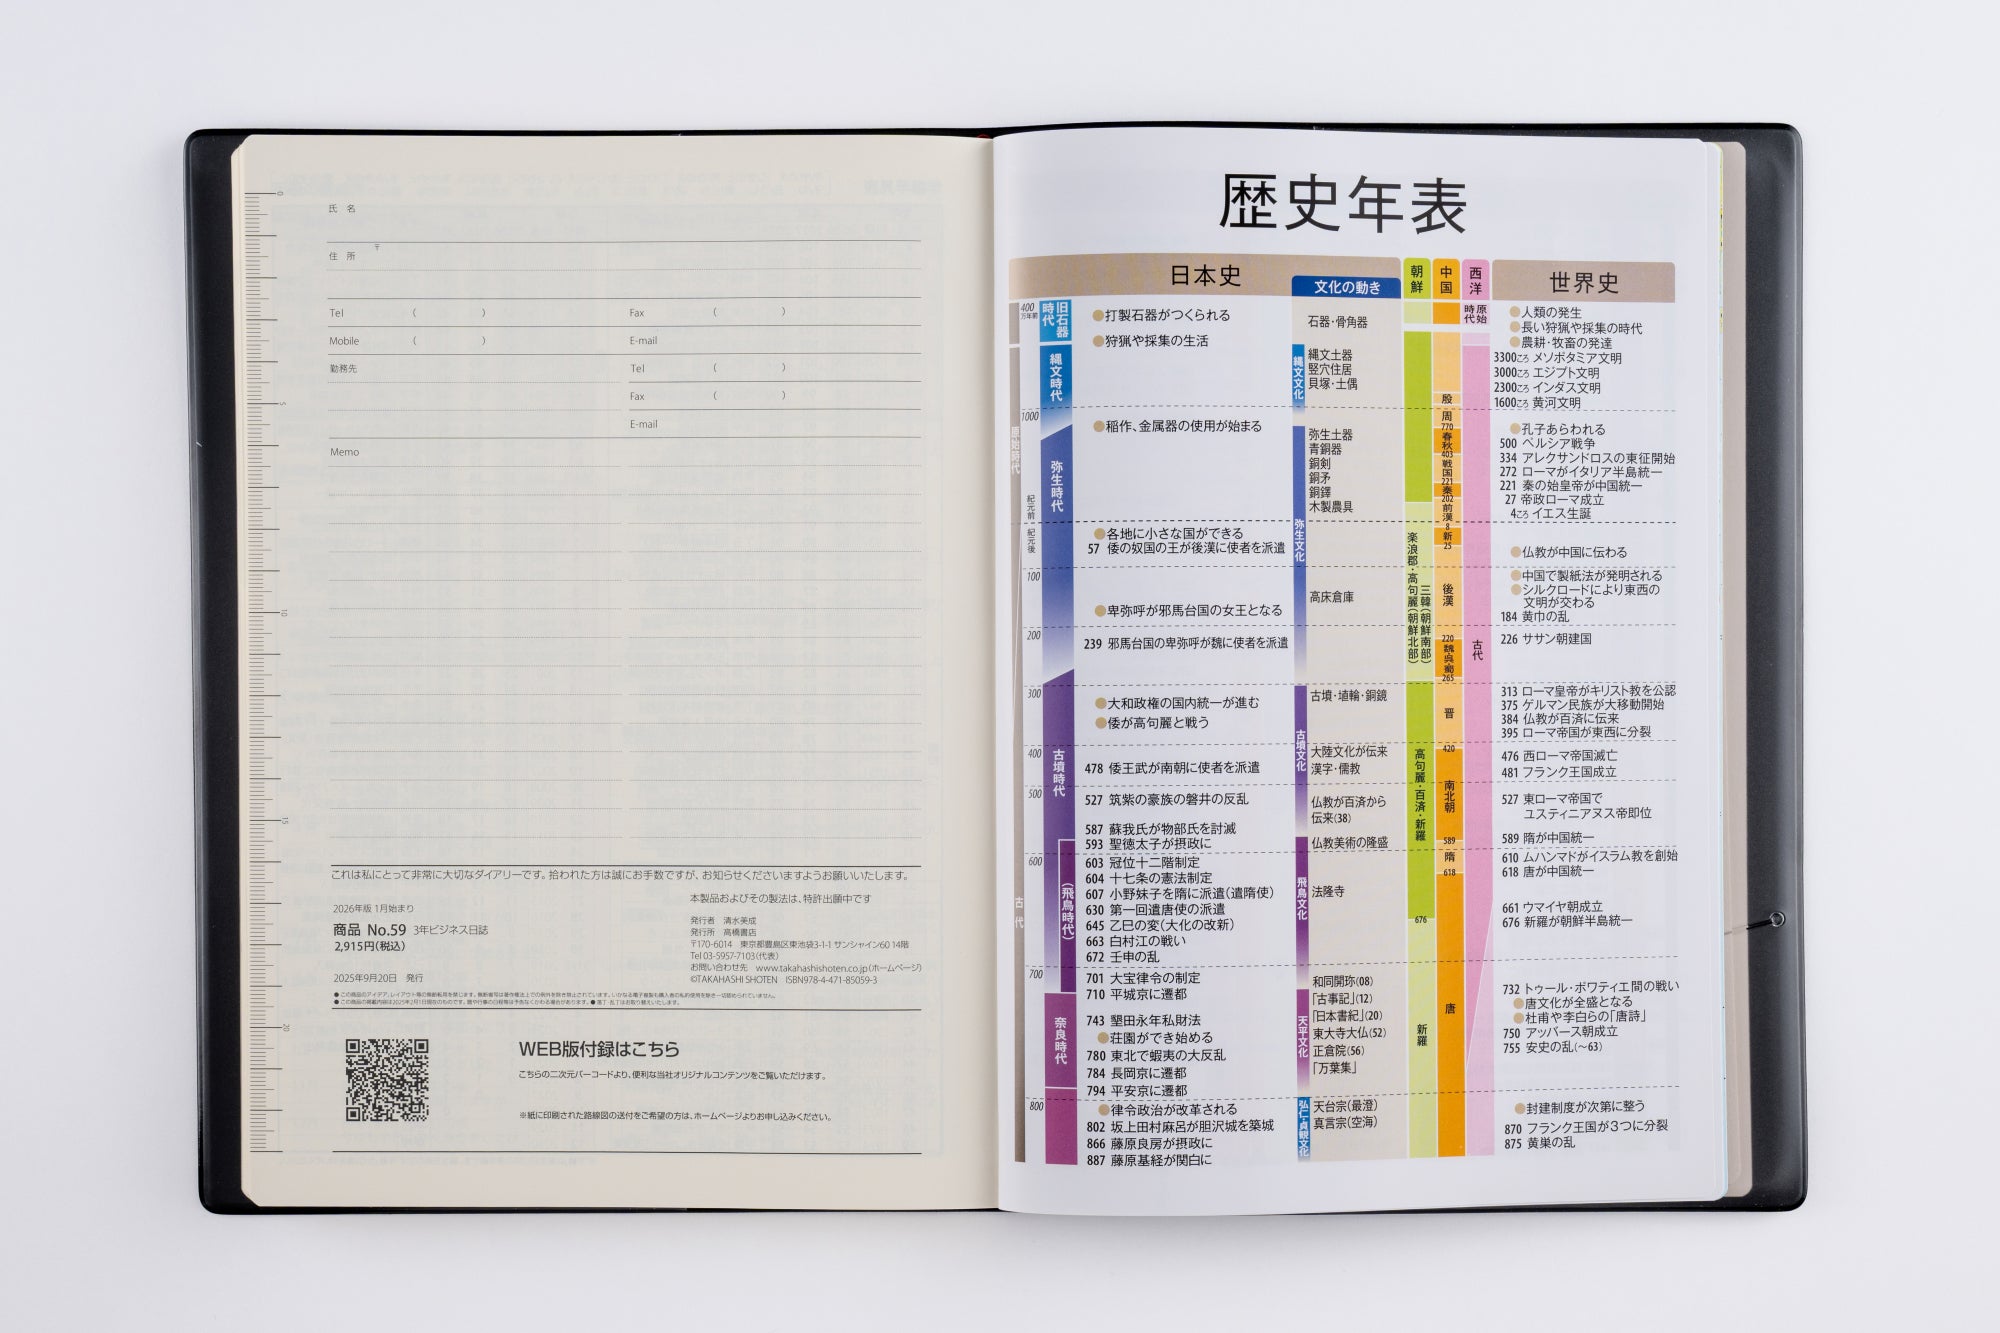 氏 名
住 所
〒
Tel ( ) Fax ( )
Mobile ( ) E-mail
勤務先 Tel ( )
Fax ( )
E-mail
Memo
これは私にとって非常に大切なダイアリーです。拾われた方は誠にお手数ですが、お知らせくださいますようお願いいたします。
2026年版 1月始まり
商品 No.59 3年ビジネス日誌
2,915円(税込)
2025年9月20日 発行
本製品およびその製法は、特許出願中です
発行者 清水美成
発行所 高橋書店
〒170-6014 東京都豊島区東池袋3-1-1 サンシャイン60 14階
Tel 03-5957-7103(代表)
お問い合わせ先 www.takahashishoten.co.jp(ホームページ)
©TAKAHASHI SHOTEN ISBN978-4-471-85059-3
WEB版付録はこちら
こちらの二次元バーコードより、便利な当社オリジナルコンテンツをご覧いただけます。
※紙に印刷された路線図の送付をご希望の方は、ホームページよりお申し込みください。
0
5
10
15
20
歴史年表
日本史
文化の動き
朝鮮
中国
西洋
世界史
400万年前
1000
紀元前
紀元後
100
200
300
400
500
600
700
800
原始時代
古代
旧石器時代
縄文時代
弥生時代
古墳時代
(飛鳥時代)
奈良時代
●打製石器がつくられる
●狩猟や採集の生活
●稲作、金属器の使用が始まる
●各地に小さな国ができる
57 倭の奴国の王が後漢に使者を派遣
●卑弥呼が邪馬台国の女王となる
239 邪馬台国の卑弥呼が魏に使者を派遣
●大和政権の国内統一が進む
●倭が高句麗と戦う
478 倭王武が南朝に使者を派遣
527 筑紫の豪族の磐井の反乱
587 蘇我氏が物部氏を討滅
593 聖徳太子が摂政に
603 冠位十二階制定
604 十七条の憲法制定
607 小野妹子を隋に派遣(遣隋使)
630 第一回遣唐使の派遣
645 乙巳の変(大化の改新)
663 白村江の戦い
672 壬申の乱
701 大宝律令の制定
710 平城京に遷都
743 墾田永年私財法
●荘園ができ始める
780 東北で蝦夷の大反乱
784 長岡京に遷都
794 平安京に遷都
●律令政治が改革される
802 坂上田村麻呂が胆沢城を築城
866 藤原良房が摂政に
887 藤原基経が関白に
縄文文化
弥生文化
古墳文化
飛鳥文化
天平文化
弘仁・貞観文化
石器・骨角器
縄文土器
竪穴住居
貝塚・土偶
弥生土器
青銅器
銅剣
銅矛
銅鐸
木製農具
高床倉庫
古墳・埴輪・銅鏡
大陸文化が伝来
漢字・儒教
仏教が百済から
伝来(38)
仏教美術の隆盛
法隆寺
和同開珎(08)
「古事記」(12)
「日本書紀」(20)
東大寺大仏(52)
正倉院(56)
「万葉集」
天台宗(最澄)
真言宗(空海)
楽浪郡・高句麗(朝鮮北部)
三韓(朝鮮南部)
高句麗・百済・新羅
676
新羅
殷
周
770
春秋
403
戦国
221
秦
202
前漢
8
新
25
後漢
220
魏呉蜀
265
晋
420
南北朝
589
隋
618
唐
原始時代
古代
●人類の発生
●長い狩猟や採集の時代
●農耕・牧畜の発達
3300ころ メソポタミア文明
3000ころ エジプト文明
2300ころ インダス文明
1600ころ 黄河文明
●孔子あらわれる
500 ペルシア戦争
334 アレクサンドロスの東征開始
272 ローマがイタリア半島統一
221 秦の始皇帝が中国統一
27 帝政ローマ成立
4ころ イエス生誕
●仏教が中国に伝わる
●中国で製紙法が発明される
●シルクロードにより東西の
文明が交わる
184 黄巾の乱
226 ササン朝建国
313 ローマ皇帝がキリスト教を公認
375 ゲルマン民族が大移動開始
384 仏教が百済に伝来
395 ローマ帝国が東西に分裂
476 西ローマ帝国滅亡
481 フランク王国成立
527 東ローマ帝国で
ユスティニアヌス帝即位
589 隋が中国統一
610 ムハンマドがイスラム教を創始
618 唐が中国統一
661 ウマイヤ朝成立
676 新羅が朝鮮半島統一
732 トゥール・ポワティエ間の戦い
●唐文化が全盛となる
●杜甫や李白らの「唐詩」
750 アッバース朝成立
755 安史の乱(〜63)
●封建制度が次第に整う
870 フランク王国が3つに分裂
875 黄巣の乱